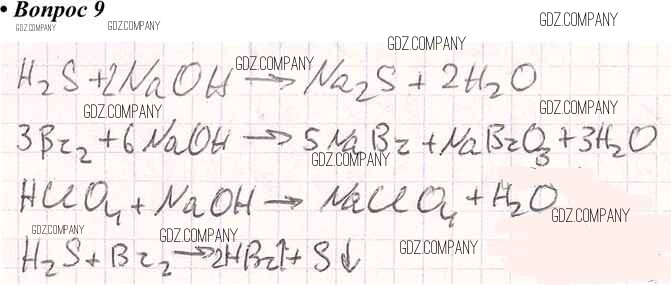 • Вопрос 9
GDZ.COMPANY GDZ.COMPANY GDZ.COMPANY
GDZ.COMPANY
H₂S + 2NaOH → Na₂S + 2H₂O
GDZ.COMPANY
GDZ.COMPANY GDZ.COMPANY
3Br₂ + 6NaOH → 5NaBr + NaBrO₃ + 3H₂O
GDZ.COMPANY
HClO₄ + NaOH → NaClO₄ + H₂O
GDZ.COMPANY
GDZ.COMPANY GDZ.COMPANY GDZ.COMPANY
H₂S + Br₂ → 2HBr↑ + S↓